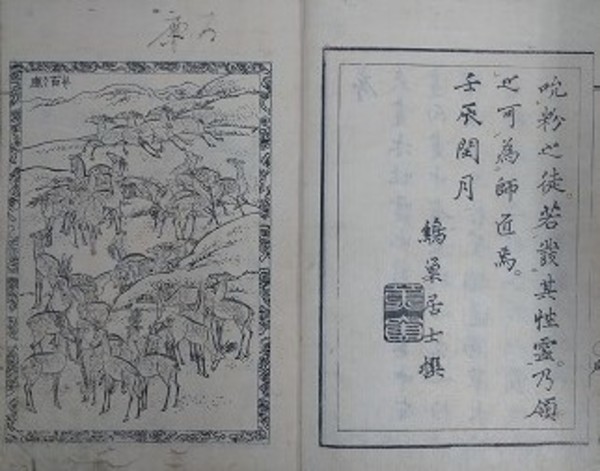 吮粉之徒。若發其性靈。乃領
之可為師匠焉。
壬辰閏月
巢居士撰